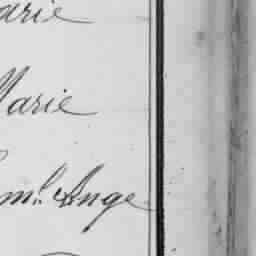 arie
Marie
m.l Ange